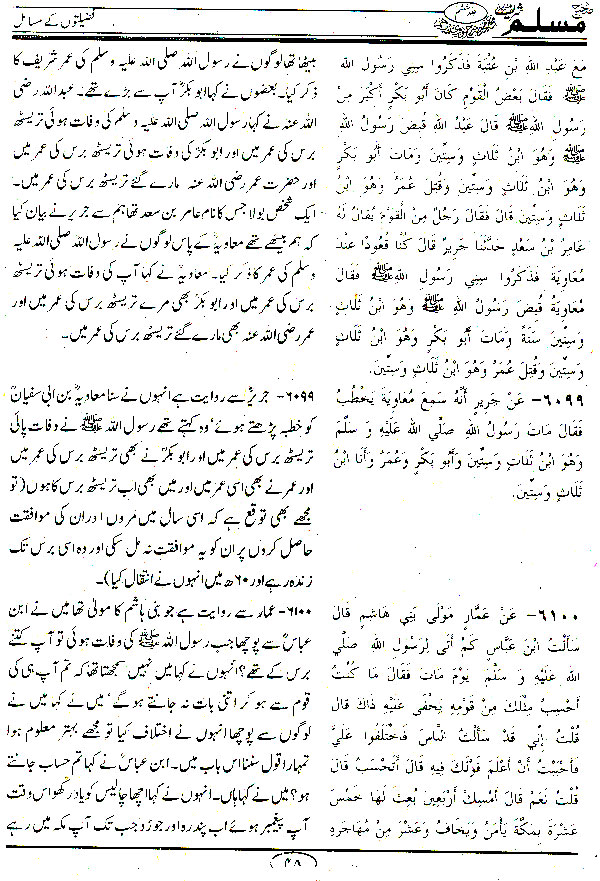 صحیح مسلم شریف
فضیلتوں کے مسائل
مَعَ عَبْدِ اللهِ بْنِ عُتْبَةَ فَذَكَرُوا سِنِي رَسُولِ اللهِ
ﷺ فَقَالَ بَعْضُ الْقَوْمِ كَانَ أَبُو بَكْرٍ أَكْبَرَ مِنْ
رَسُولِ اللهِ ﷺ قَالَ عَبْدُ اللهِ قُبِضَ رَسُولُ اللهِ
ﷺ وَهُوَ ابْنُ ثَلَاثٍ وَسِتِّينَ وَمَاتَ أَبُو بَكْرٍ
وَهُوَ ابْنُ ثَلَاثٍ وَسِتِّينَ وَقُتِلَ عُمَرُ وَهُوَ ابْنُ
ثَلَاثٍ وَسِتِّينَ قَالَ فَقَالَ رَجُلٌ مِنْ الْقَوْمِ يُقَالُ لَهُ
عَامِرُ بْنُ سَعْدٍ حَدَّثَنَا جَرِيرٌ قَالَ كُنَّا قُعُودًا عِنْدَ
مُعَاوِيَةَ فَذَكَرُوا سِنِي رَسُولِ اللهِ ﷺ فَقَالَ
مُعَاوِيَةُ قُبِضَ رَسُولُ اللهِ ﷺ وَهُوَ ابْنُ ثَلَاثٍ
وَسِتِّينَ سَنَةً وَمَاتَ أَبُو بَكْرٍ وَهُوَ ابْنُ ثَلَاثٍ
وَسِتِّينَ وَقُتِلَ عُمَرُ وَهُوَ ابْنُ ثَلَاثٍ وَسِتِّينَ.
٦٠٩٩- عَنْ جَرِيرٍ أَنَّهُ سَمِعَ مُعَاوِيَةَ يَخْطُبُ
فَقَالَ مَاتَ رَسُولُ اللهِ صَلَّى اللهُ عَلَيْهِ وَ سَلَّمَ
وَهُوَ ابْنُ ثَلَاثٍ وَسِتِّينَ وَأَبُو بَكْرٍ وَعُمَرُ وَأَنَا ابْنُ
ثَلَاثٍ وَسِتِّينَ.
٦١٠٠- عَنْ عَمَّارٍ مَوْلَى بَنِي هَاشِمٍ قَالَ
سَأَلْتُ ابْنَ عَبَّاسٍ كَمْ أَتَى لِرَسُولِ اللهِ صَلَّى
اللهُ عَلَيْهِ وَ سَلَّمَ يَوْمَ مَاتَ فَقَالَ مَا كُنْتُ
أَحْسِبُ مِثْلَكَ مِنْ قَوْمِهِ يَخْفَى عَلَيْهِ ذَاكَ قَالَ
قُلْتُ إِنِّي قَدْ سَأَلْتُ النَّاسَ فَاخْتَلَفُوا عَلَيَّ
فَأَحْبَبْتُ أَنْ أَعْلَمَ قَوْلَكَ فِيهِ قَالَ أَتَحْسُبُ قَالَ
قُلْتُ نَعَمْ قَالَ أَمْسِكْ أَرْبَعِينَ بُعِثَ لَهَا خَمْسَ
عَشْرَةَ بِمَكَّةَ يَأْمَنُ وَيَخَافُ وَعَشْرَ مِنْ مُهَاجَرِهِ
بیٹھا تھا لوگوں نے رسول اللہ صلی اللہ علیہ وسلم کی عمر شریف کا
ذکر کیا۔ بعضوں نے کہا ابو بکرؓ آپ سے بڑے تھے۔ عبداللہ رضی
اللہ عنہ نے کہا رسول اللہ صلی اللہ علیہ وسلم کی وفات ہوئی تریسٹھ
برس کی عمر میں اور ابو بکرؓ کی وفات ہوئی تریسٹھ برس کی عمر میں
اور حضرت عمر رضی اللہ عنہ مارے گئے تریسٹھ برس کی عمر میں۔
ایک شخص بولا جس کا نام عامر بن سعد تھا ہم سے جریر نے بیان کیا
کہ ہم بیٹھے تھے معاویہؓ کے پاس لوگوں نے رسول اللہ صلی اللہ علیہ
وسلم کی عمر کا ذکر کیا۔ معاویہؓ نے کہا آپ کی وفات ہوئی تریسٹھ
برس کی عمر میں اور ابو بکرؓ بھی مرے تریسٹھ برس کی عمر میں اور
عمر رضی اللہ عنہ بھی مارے گئے تریسٹھ برس کی عمر میں۔
٦٠٩٩- جریرؓ سے روایت ہے انہوں نے سنا معاویہؓ بن ابی سفیانؓ
کو خطبہ پڑھتے ہوئے' وہ کہتے تھے رسول اللہ ﷺ نے وفات پائی
تریسٹھ برس کی عمر میں اور ابو بکرؓ نے بھی تریسٹھ برس کی عمر میں
اور عمر نے بھی اسی عمر میں اور میں بھی اب تریسٹھ برس کا ہوں (تو
مجھے بھی توقع ہے کہ اسی سال میں مروں اور ان کی موافقت
حاصل کروں پر ان کو یہ موافقت نہ مل سکی اور وہ اسی برس تک
زندہ رہے اور ٦٠ھ میں انہوں نے انتقال کیا)۔
٦١٠٠- عمار سے روایت ہے جو بنی ہاشم کا مولیٰ تھا میں نے ابن
عباسؓ سے پوچھا جب رسول اللہ ﷺ کی وفات ہوئی تو آپ کتنے
برس کے تھے؟ انہوں نے کہا میں نہیں سمجھتا تھا کہ تم آپ ہی کی
قوم سے ہو کر اتنی بات نہ جانتے ہو گے' میں نے کہا میں نے
لوگوں سے پوچھا انہوں نے اختلاف کیا تو مجھے بہتر معلوم ہوا
تمہارا قول سننا اس باب میں۔ ابن عباسؓ نے کہا تم حساب جانتے
ہو؟ میں نے کہا ہاں۔ انہوں نے کہا اچھا چالیس کو یاد رکھو اس وقت
آپ پیغمبر ہوئے اب پندرہ اور جوڑو جب تک آپ مکہ میں رہے
٤٨